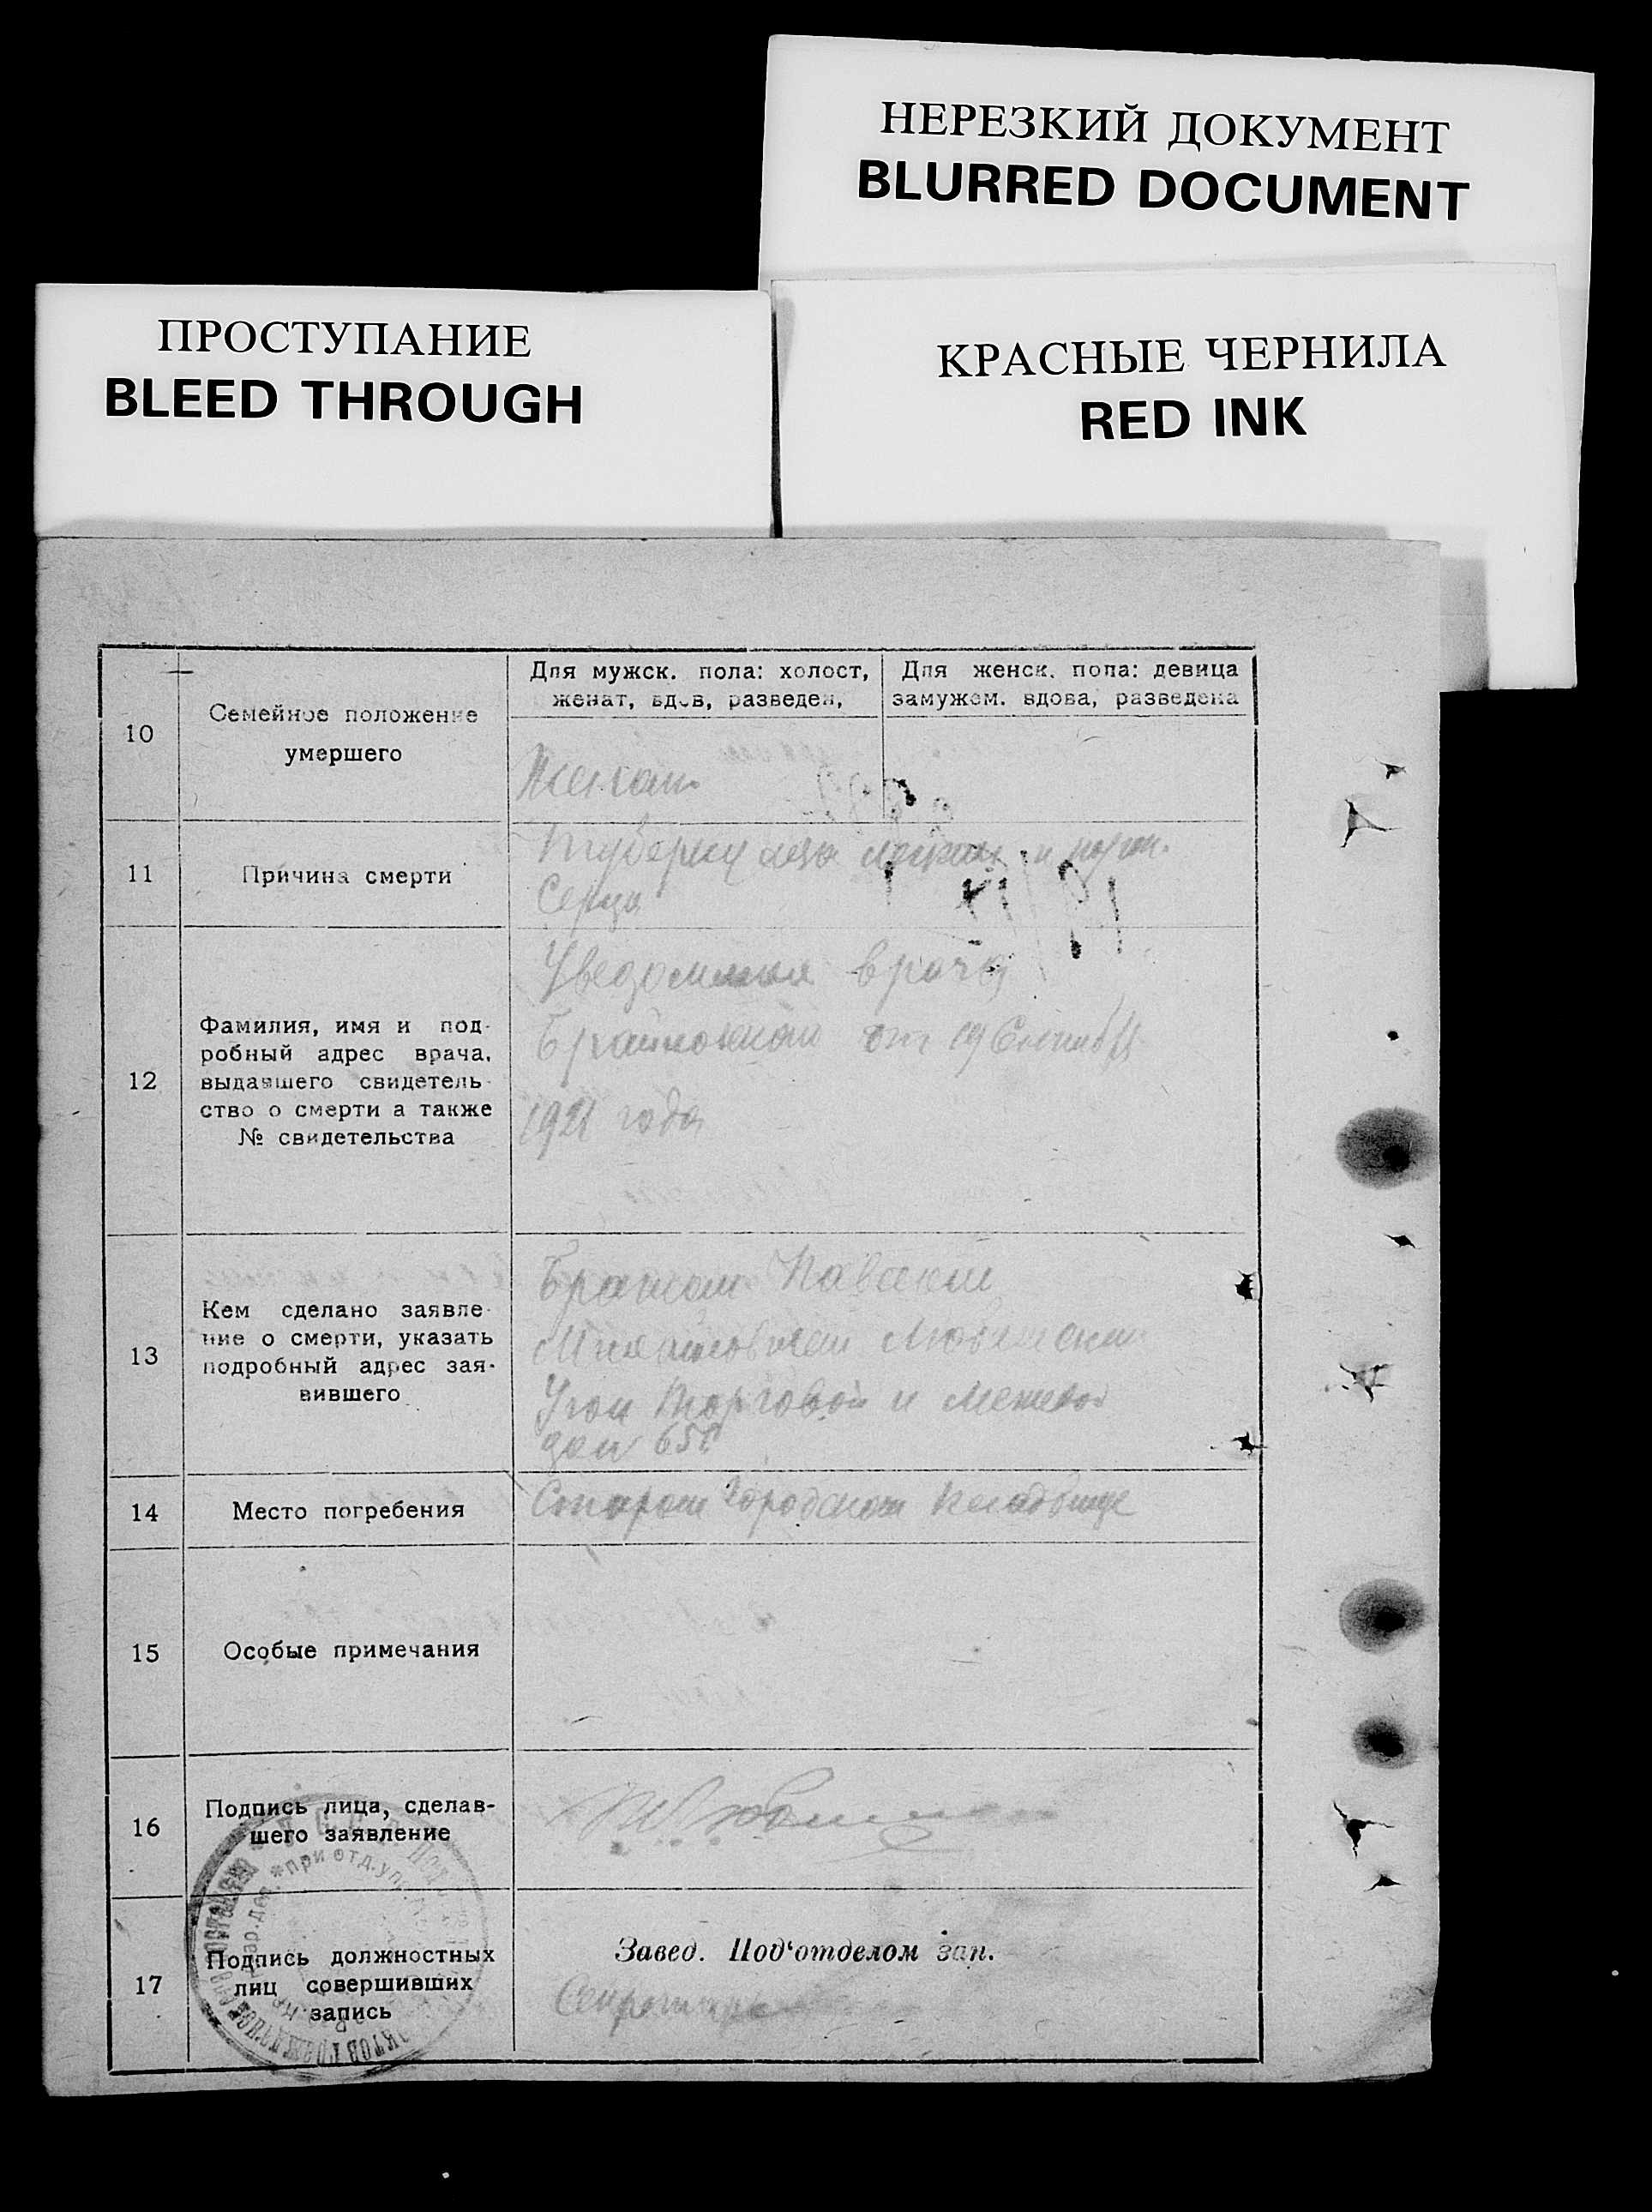 НЕРЕЗКИЙ ДОКУМЕНТ
BLURRED DOCUMENT
ПРОСТУПАНИЕ
BLEED THROUGH
КРАСНЫЕ ЧЕРНИЛА
RED INK
10
Семейное положение
умершего
Для мужск. пола: холост,
женат, вдов, разведен,
Для женск. пола: девица
замужем. вдова, разведена
Женат
11
Причина смерти
легких и
Серца
12
Фамилия, имя и под-
робный адрес врача,
выдавшего свидетель-
ство о смерти а также
№ свидетельства
врача
от 19 Сентября
1921 года
13
Кем сделано заявле-
ние о смерти, указать
подробный адрес зая-
вившего
Братом
Угол Торговой и Межевой
дом
14
Место погребения
Старом Городском Кладбище
15
Особые примечания
16
Подпись лица, сделав-
шего заявление
17
Подпись должностных
лиц совершивших
запись
Завед. Под‘отделом зап.
Секретарь
при отд. упр.